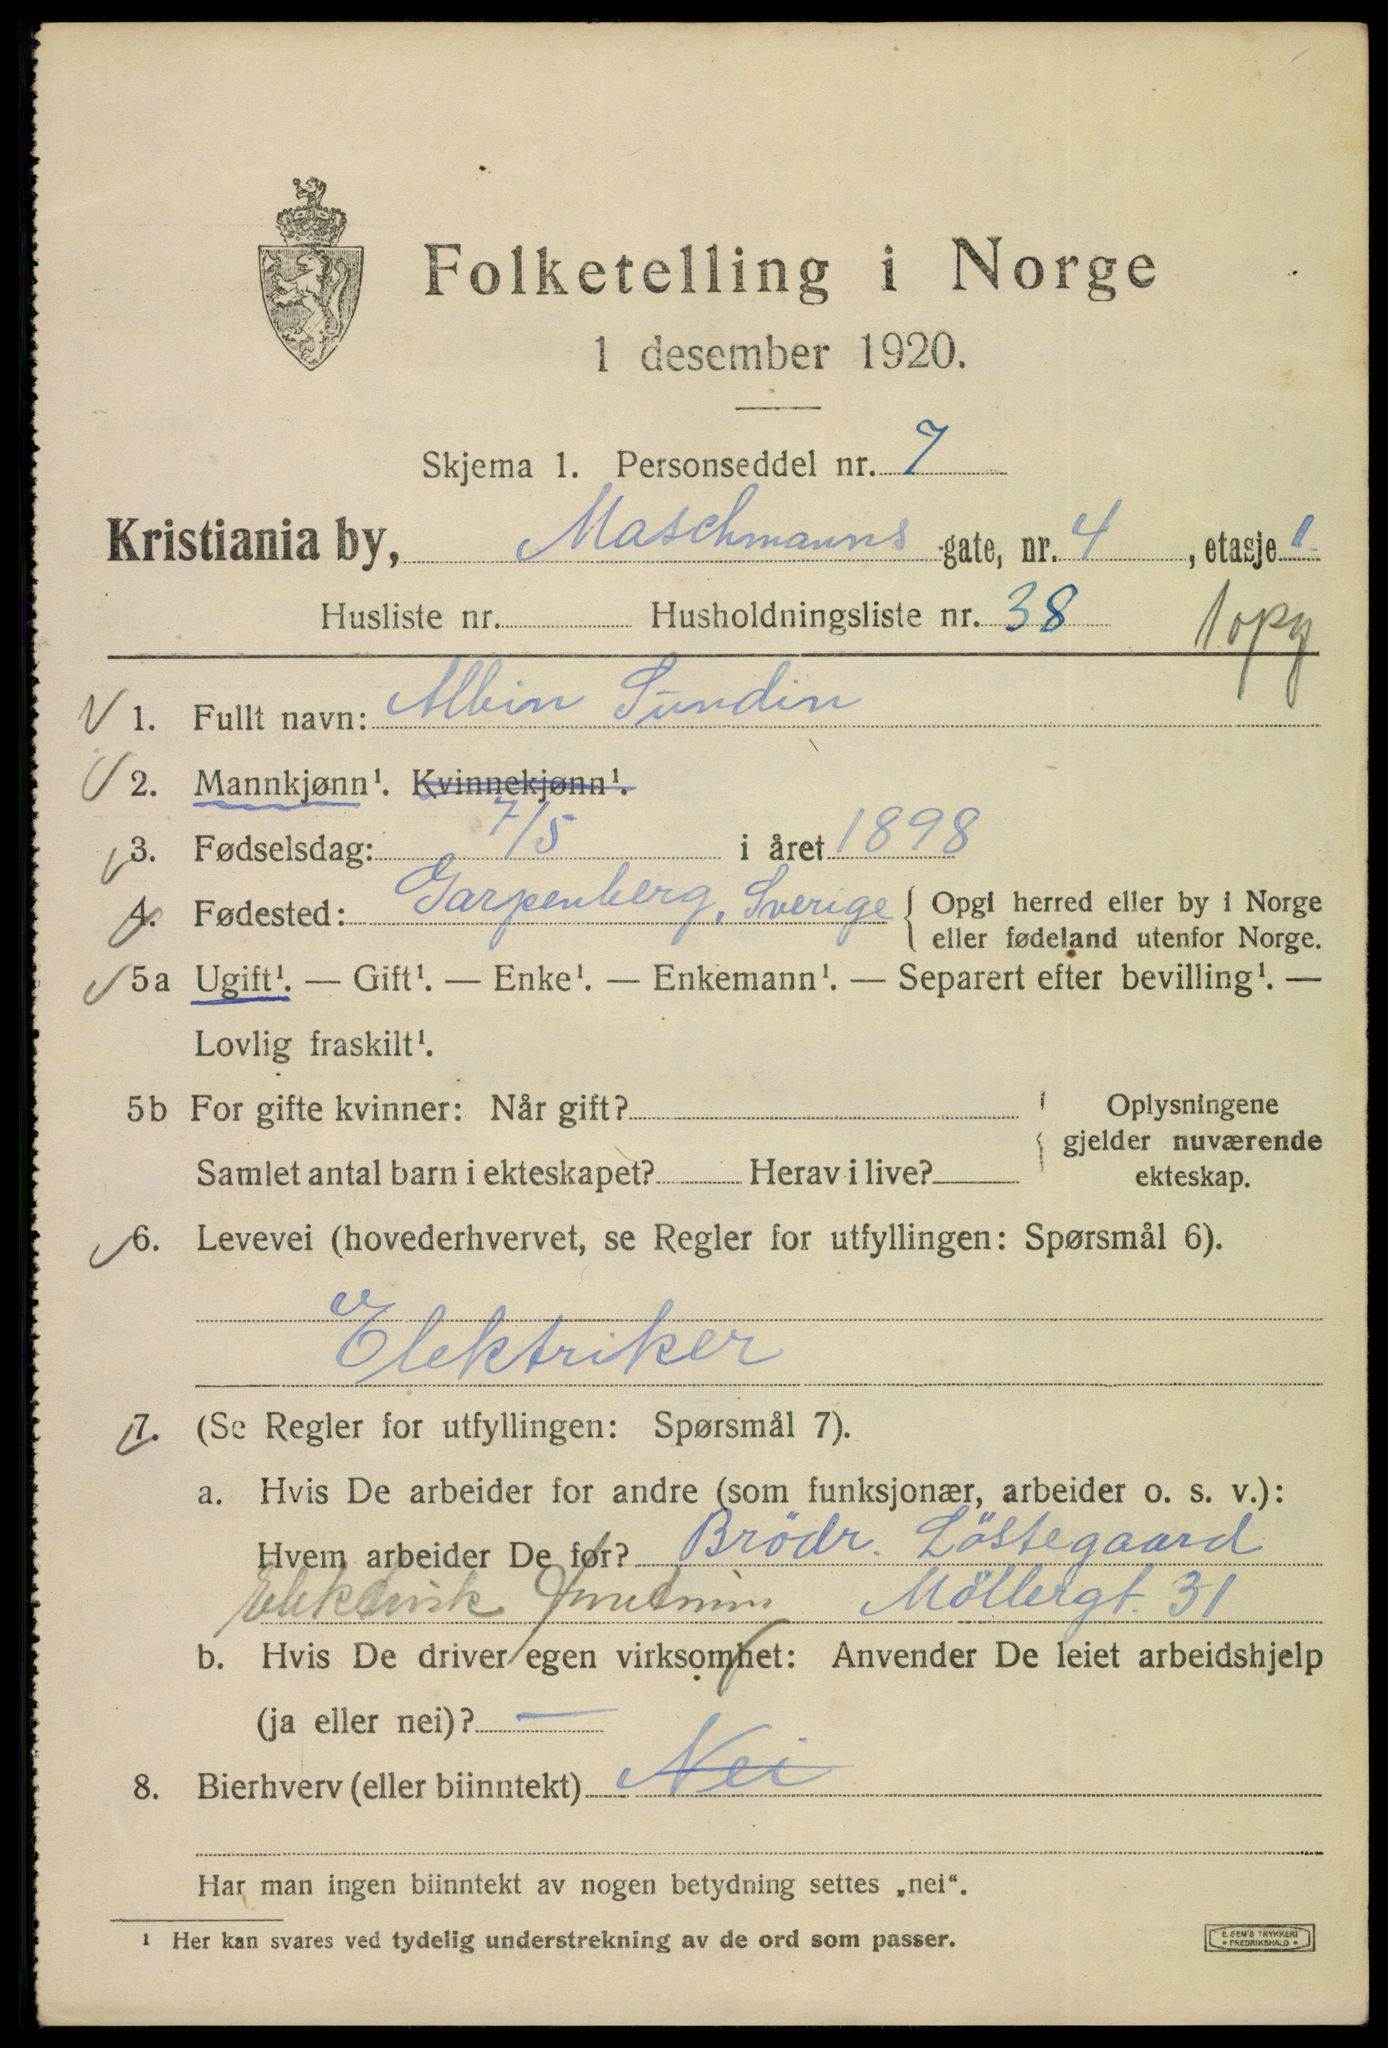 Folketelling i Norge
1 desember 1920.
Skjema 1. Personseddel nr. 7
Kristiania by, Maschmanns gate, nr. 4, etasje 1
Husliste nr. Husholdningsliste nr. 38 1 opg
1. Fullt navn: Albin Sundin
2. Mannkjønn¹. Kvinnekjønn¹.
3. Fødselsdag: 7/5 i året 1898
4. Fødested: Garpenberg, Sverige { Opgi herred eller by i Norge
eller fødeland utenfor Norge.
5a Ugift¹. — Gift¹. — Enke¹. — Enkemann¹. — Separert efter bevilling¹. —
Lovlig fraskilt¹.
5b For gifte kvinner: Når gift? Oplysningene
gjelder nuværende
Samlet antal barn i ekteskapet? Herav i live? ekteskap.
6. Levevei (hovederhvervet, se Regler for utfyllingen: Spørsmål 6).
Elektriker
7. (Se Regler for utfyllingen: Spørsmål 7).
a. Hvis De arbeider for andre (som funksjonær, arbeider o. s. v.):
Hvem arbeider De for? Brödr. Löstegaard
Elektrisk Möllergt. 31
b. Hvis De driver egen virksomhet: Anvender De leiet arbeidshjelp
(ja eller nei)? —
8. Bierhverv (eller biinntekt) Nei
Har man ingen biinntekt av nogen betydning settes „nei“.
¹ Her kan svares ved tydelig understrekning av de ord som passer.
E. SEM'S TRYKKERI
FREDRIKSHALD